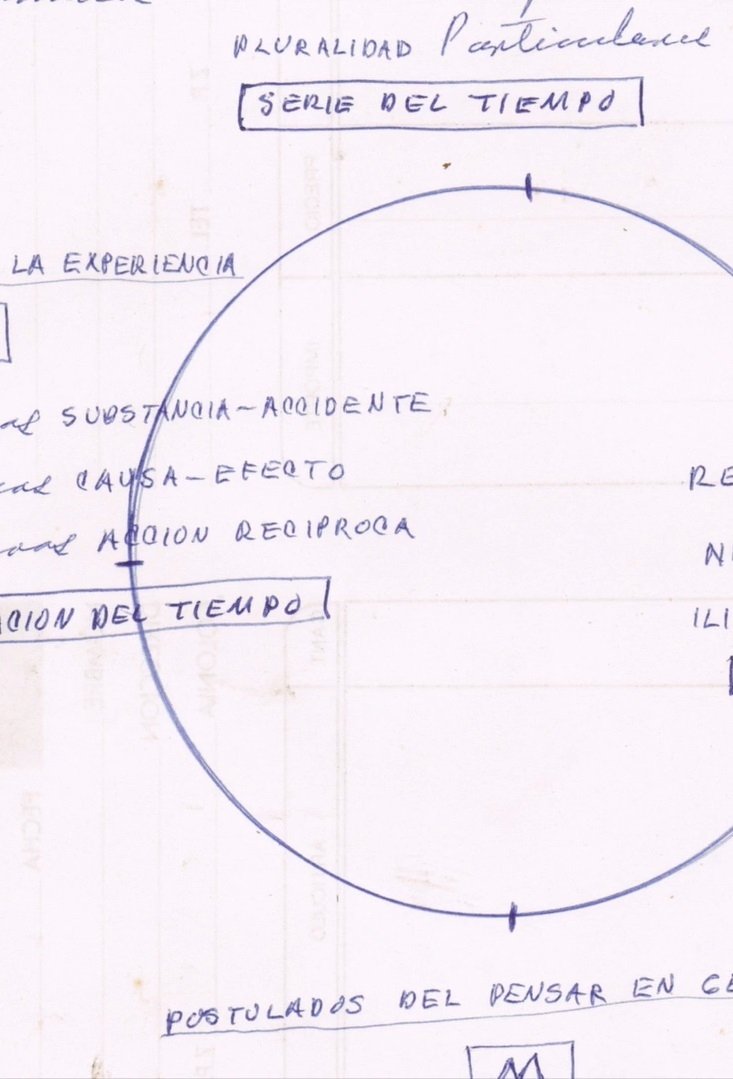 PLURALIDAD Particulares
SERIE DEL TIEMPO
LA EXPERIENCIA
as SUBSTANCIA-ACCIDENTE
cas CAUSA-EFECTO
ACCION RECIPROCA
CION DEL TIEMPO
RE
N
ILI
POSTULADOS DEL PENSAR EN GE
M